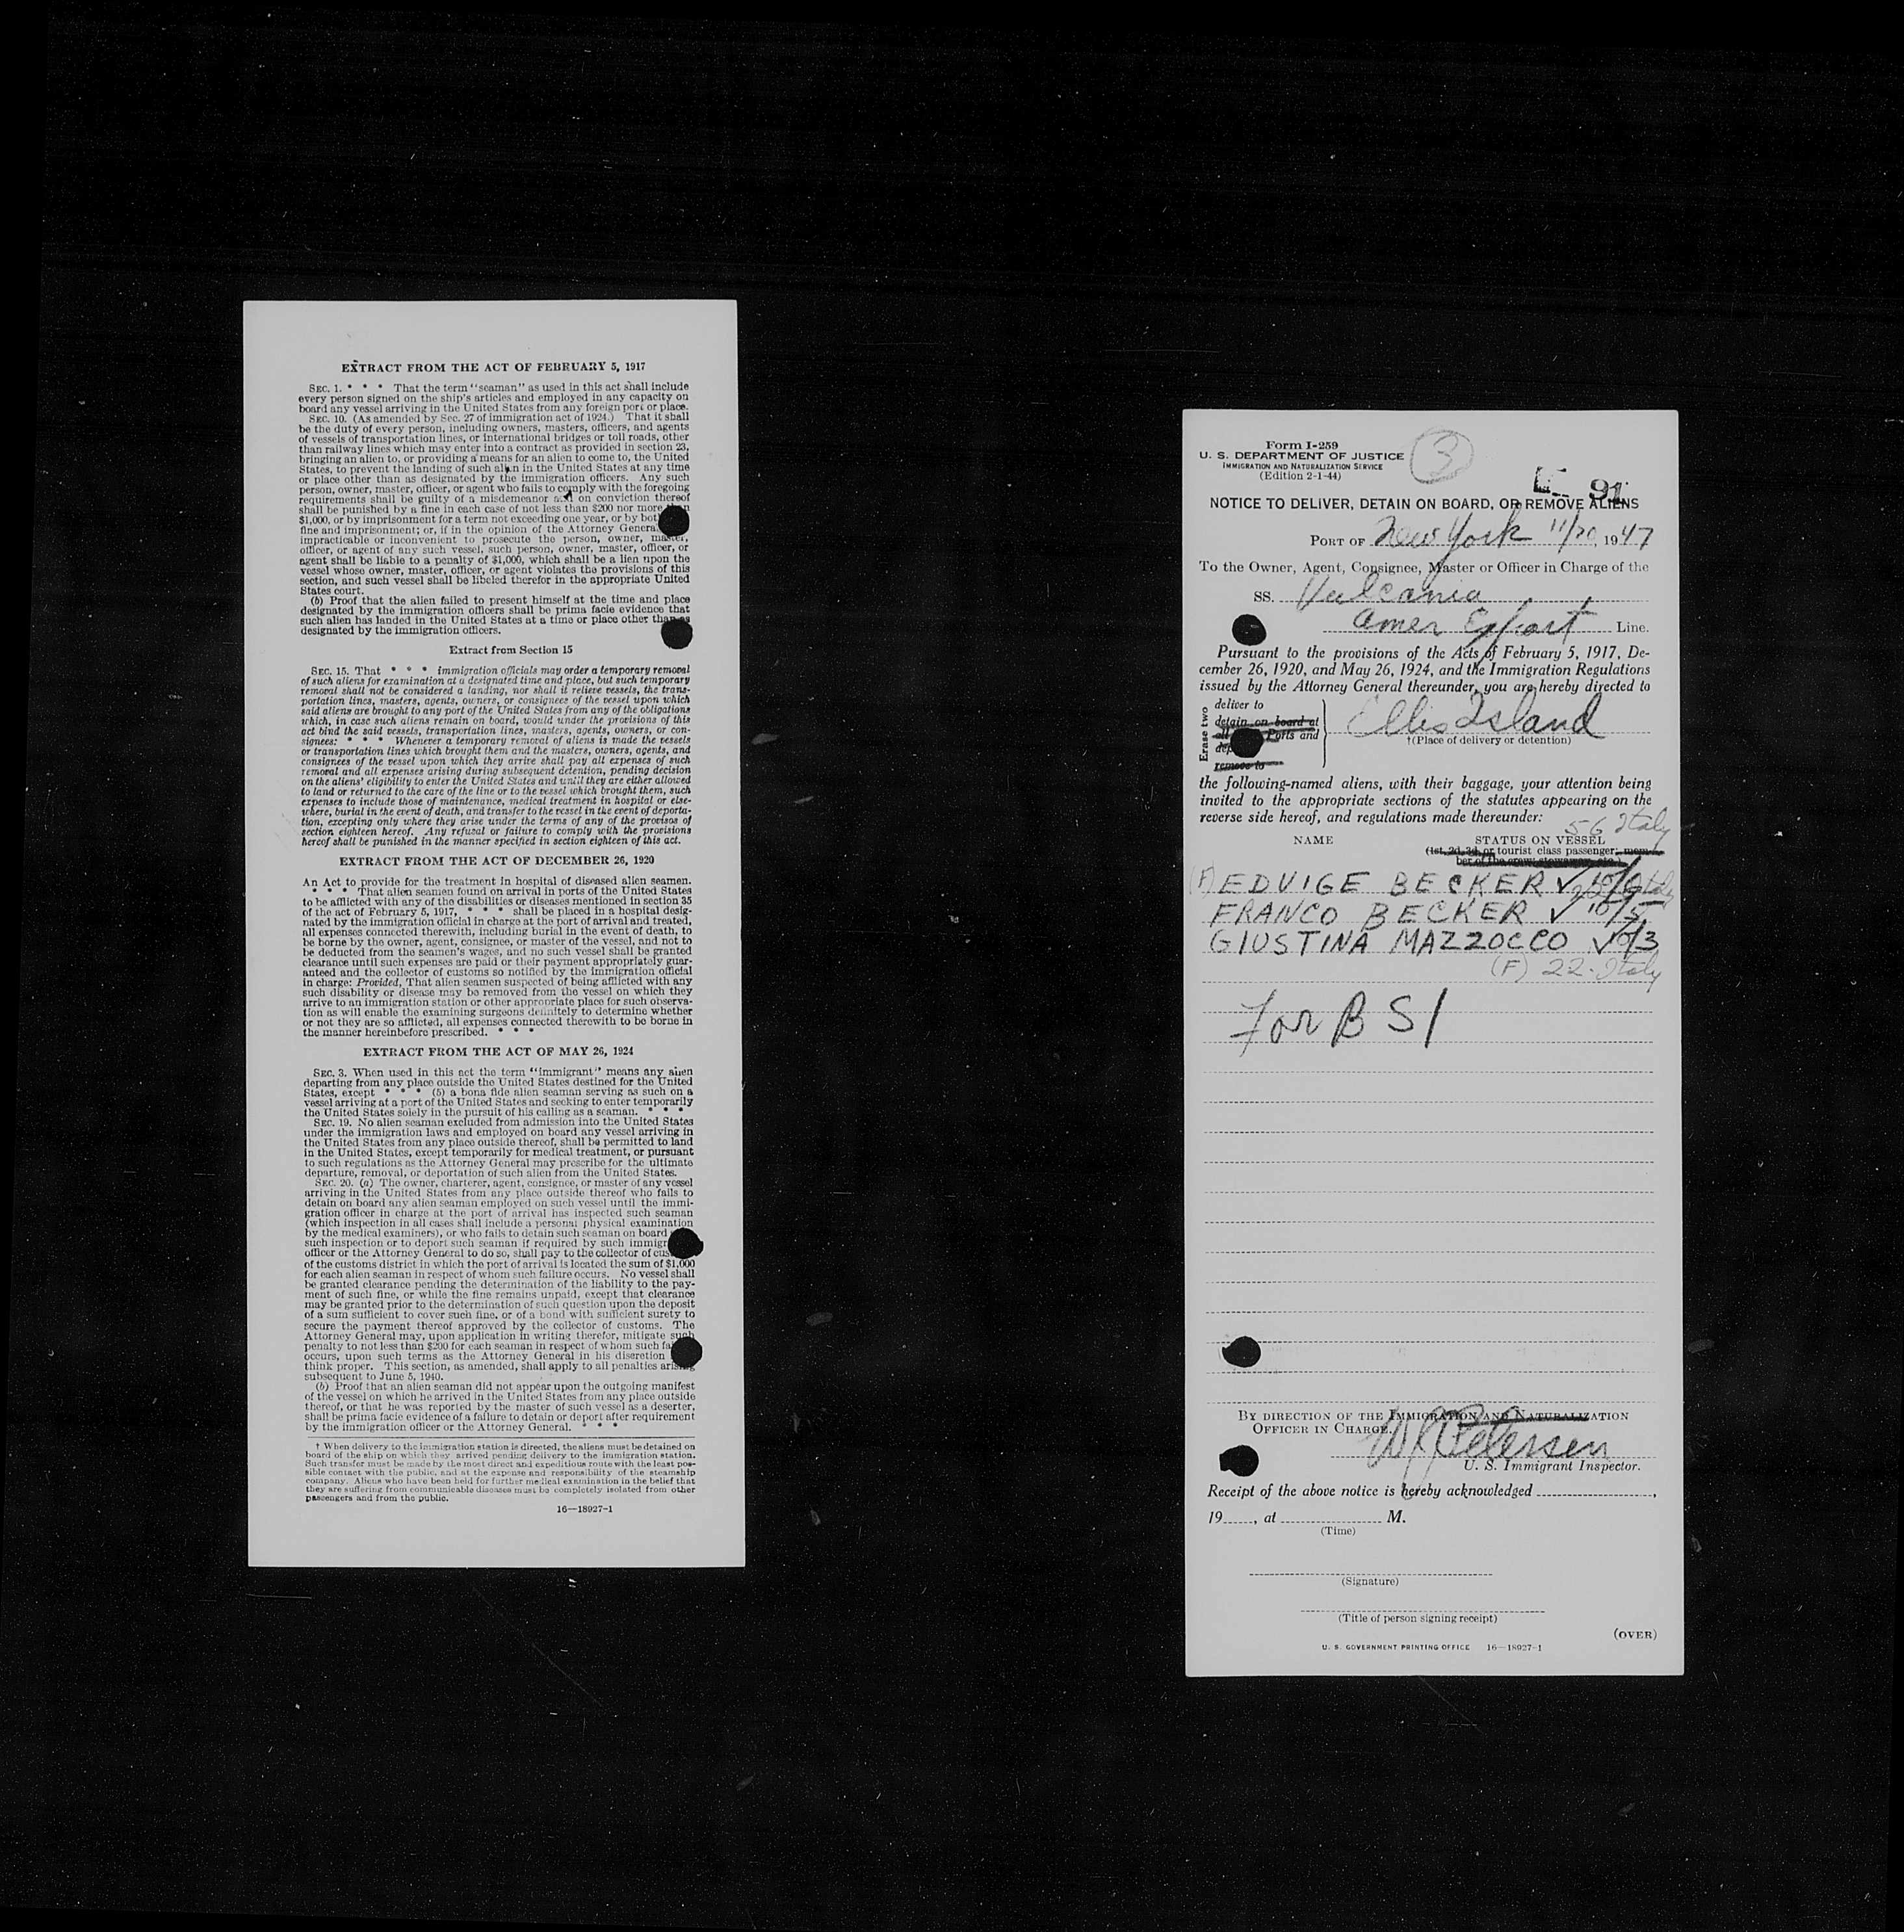 EXTRACT FROM THE ACT OF FEBRUARY 5, 1917
SEC. 1. * * * That the term "seaman" as used in this act shall include
every person signed on the ship's articles and employed in any capacity on
board any vessel arriving in the United States from any foreign port or place.
SEC. 10. (As amended by Sec. 27 of immigration act of 1924.) That it shall
be the duty of every person, including owners, masters, officers, and agents
of vessels of transportation lines, or international bridges or toll roads, other
than railway lines which may enter into a contract as provided in section 23,
bringing an alien to, or providing a means for an alien to come to, the United
States, to prevent the landing of such alien in the United States at any time
or place other than as designated by the immigration officers. Any such
person, owner, master, officer, or agent who fails to comply with the foregoing
requirements shall be guilty of a misdemeanor and on conviction thereof
shall be punished by a fine in each case of not less than $200 nor more than
$1,000, or by imprisonment for a term not exceeding one year, or by both
fine and imprisonment; or, if in the opinion of the Attorney General
impracticable or inconvenient to prosecute the person, owner, master,
officer, or agent of any such vessel, such person, owner, master, officer, or
agent shall be liable to a penalty of $1,000, which shall be a lien upon the
vessel whose owner, master, officer, or agent violates the provisions of this
section, and such vessel shall be libeled therefor in the appropriate United
States court.
(b) Proof that the alien failed to present himself at the time and place
designated by the immigration officers shall be prima facie evidence that
such alien has landed in the United States at a time or place other than as
designated by the immigration officers.
Extract from Section 15
SEC. 15. That * * * immigration officials may order a temporary removal
of such aliens for examination at a designated time and place, but such temporary
removal shall not be considered a landing, nor shall it relieve vessels, the trans-
portation lines, masters, agents, owners, or consignees of the vessel upon which
said aliens are brought to any port of the United States from any of the obligations
which, in case such aliens remain on board, would under the provisions of this
act bind the said vessels, transportation lines, masters, agents, owners, or con-
signees: * * * Whenever a temporary removal of aliens is made the vessels
or transportation lines which brought them and the masters, owners, agents, and
consignees of the vessel upon which they arrive shall pay all expenses of such
removal and all expenses arising during subsequent detention, pending decision
on the aliens' eligibility to enter the United States and until they are either allowed
to land or returned to the care of the line or to the vessel which brought them, such
expenses to include those of maintenance, medical treatment in hospital or else-
where, burial in the event of death, and transfer to the vessel in the event of deporta-
tion, excepting only where they arise under the terms of any of the provisos of
section eighteen hereof. Any refusal or failure to comply with the provisions
hereof shall be punished in the manner specified in section eighteen of this act.
EXTRACT FROM THE ACT OF DECEMBER 26, 1920
An Act to provide for the treatment in hospital of diseased alien seamen.
* * * That alien seamen found on arrival in ports of the United States
to be afflicted with any of the disabilities or diseases mentioned in section 35
of the act of February 5, 1917, * * * shall be placed in a hospital desig-
nated by the immigration official in charge at the port of arrival and treated,
all expenses connected therewith, including burial in the event of death, to
be borne by the owner, agent, consignee, or master of the vessel, and not to
be deducted from the seamen's wages, and no such vessel shall be granted
clearance until such expenses are paid or their payment appropriately guar-
anteed and the collector of customs so notified by the immigration official
in charge: Provided, That alien seamen suspected of being afflicted with any
such disability or disease may be removed from the vessel on which they
arrive to an immigration station or other appropriate place for such observa-
tion as will enable the examining surgeons definitely to determine whether
or not they are so afflicted, all expenses connected therewith to be borne in
the manner hereinbefore prescribed. * * *
EXTRACT FROM THE ACT OF MAY 26, 1924
SEC. 3. When used in this act the term "immigrant" means any alien
departing from any place outside the United States destined for the United
States, except * * * (5) a bona fide alien seaman serving as such on a
vessel arriving at a port of the United States and seeking to enter temporarily
the United States solely in the pursuit of his calling as a seaman. * * *
SEC. 19. No alien seaman excluded from admission into the United States
under the immigration laws and employed on board any vessel arriving in
the United States from any place outside thereof, shall be permitted to land
in the United States, except temporarily for medical treatment, or pursuant
to such regulations as the Attorney General may prescribe for the ultimate
departure, removal, or deportation of such alien from the United States.
SEC. 20. (a) The owner, charterer, agent, consignee, or master of any vessel
arriving in the United States from any place outside thereof who fails to
detain on board any alien seaman employed on such vessel until the immi-
gration officer in charge at the port of arrival has inspected such seaman
(which inspection in all cases shall include a personal physical examination
by the medical examiners), or who fails to detain such seaman on board
such inspection or to deport such seaman if required by such immigr
officer or the Attorney General to do so, shall pay to the collector of customs
of the customs district in which the port of arrival is located the sum of $1,000
for each alien seaman in respect of whom such failure occurs. No vessel shall
be granted clearance pending the determination of the liability to the pay-
ment of such fine, or while the fine remains unpaid, except that clearance
may be granted prior to the determination of such question upon the deposit
of a sum sufficient to cover such fine, or of a bond with sufficient surety to
secure the payment thereof approved by the collector of customs. The
Attorney General may, upon application in writing therefor, mitigate such
penalty to not less than $200 for each seaman in respect of whom such fa
occurs, upon such terms as the Attorney General in his discretion
think proper. This section, as amended, shall apply to all penalties arising
subsequent to June 5, 1940.
(b) Proof that an alien seaman did not appear upon the outgoing manifest
of the vessel on which he arrived in the United States from any place outside
thereof, or that he was reported by the master of such vessel as a deserter,
shall be prima facie evidence of a failure to detain or deport after requirement
by the immigration officer or the Attorney General. * * *
† When delivery to the immigration station is directed, the aliens must be detained on
board of the ship on which they arrived pending delivery to the immigration station.
Such transfer must be made by the most direct and expeditious route with the least pos-
sible contact with the public, and at the expense and responsibility of the steamship
company. Aliens who have been held for further medical examination in the belief that
they are suffering from communicable diseases must be completely isolated from other
passengers and from the public.
16—18927-1
Form I-259
U. S. DEPARTMENT OF JUSTICE
IMMIGRATION AND NATURALIZATION SERVICE
(Edition 2-1-44)
3
91
NOTICE TO DELIVER, DETAIN ON BOARD, OR REMOVE ALIENS
PORT OF New York 11/20, 1947
To the Owner, Agent, Consignee, Master or Officer in Charge of the
SS. Vulcania
Amer Export Line.
Pursuant to the provisions of the Acts of February 5, 1917, De-
cember 26, 1920, and May 26, 1924, and the Immigration Regulations
issued by the Attorney General thereunder, you are hereby directed to
Erase two
deliver to
detain on board at
all Ports and
remove to
Ellis Island
†(Place of delivery or detention)
the following-named aliens, with their baggage, your attention being
invited to the appropriate sections of the statutes appearing on the
reverse side hereof, and regulations made thereunder:
56 Italy
NAME STATUS ON VESSEL
(1st, 2d, 3d, or tourist class passenger; mem-
ber of the crew; stowaway, etc.)
(F) EDVIGE BECKER ✓ 10/6
FRANCO BECKER ✓ 10/5
GIUSTINA MAZZOCCO ✓ 10/3
(F) 22. Italy
For B S I
BY DIRECTION OF THE IMMIGRATION AND NATURALIZATION
OFFICER IN CHARGE.
W J Petersen
U. S. Immigrant Inspector.
Receipt of the above notice is hereby acknowledged ,
19 , at M.
(Time)
(Signature)
(Title of person signing receipt)
(OVER)
U. S. GOVERNMENT PRINTING OFFICE 16—18927-1